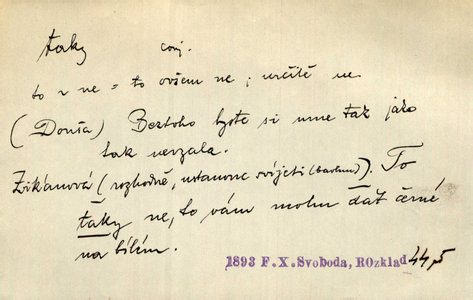 taky conj.
to v ne = to ovšem ne ; určitě ne
(Douša) Beztoho byste si mne tak jako
tak nevzala.
Zikánová (rozhodně, ustanouc svíjeti ). To
taky ne, to vám mohu dát černé
na bílém.
1893 F.X.Svoboda, ROzklad 44,5